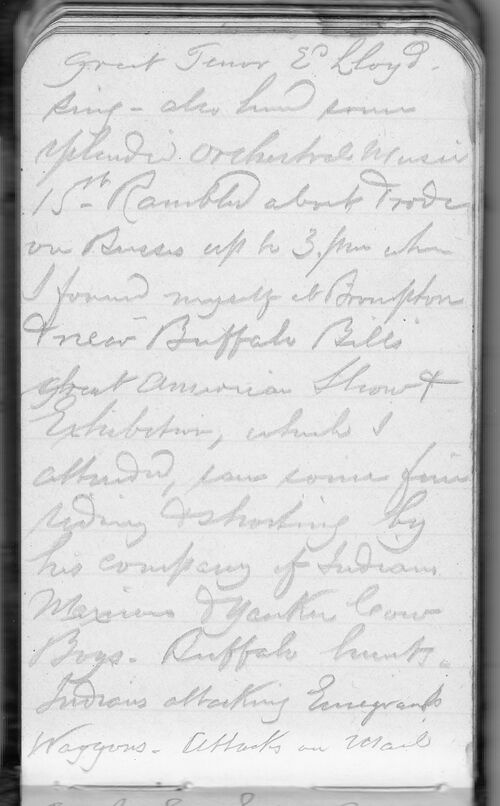 Great Tenor Ed Lloyd.
sing - also heard some
splendid Orchestral Music
15th Rambled about & rode
on Busses up to 3.pm when
I found myself at Brompton
& near Buffalo Bills
great American Show &
Exhibition, which I
attended, saw some fine
riding & shooting by
his company of Indians
Mexicans & Yankee Cow
Boys. Buffalo hunts.
Indians attacking Emegrants
Waggons - Attacks on Mail